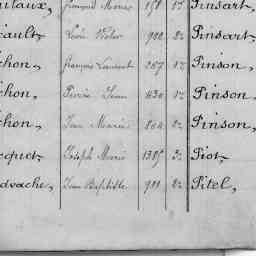 François Marie 158 1º Pinsart,
Louis Victor 922 2º Pinsart
chon, François Laurent 257 1º Pinson,
chon, Pierre Jean 430 1º Pinson,
chon, Jean Marie 804 2º Pinson,
cquot Joseph Marie 1385 3º Piot,
dvache, Jean Baptiste 911 2º Pitel,